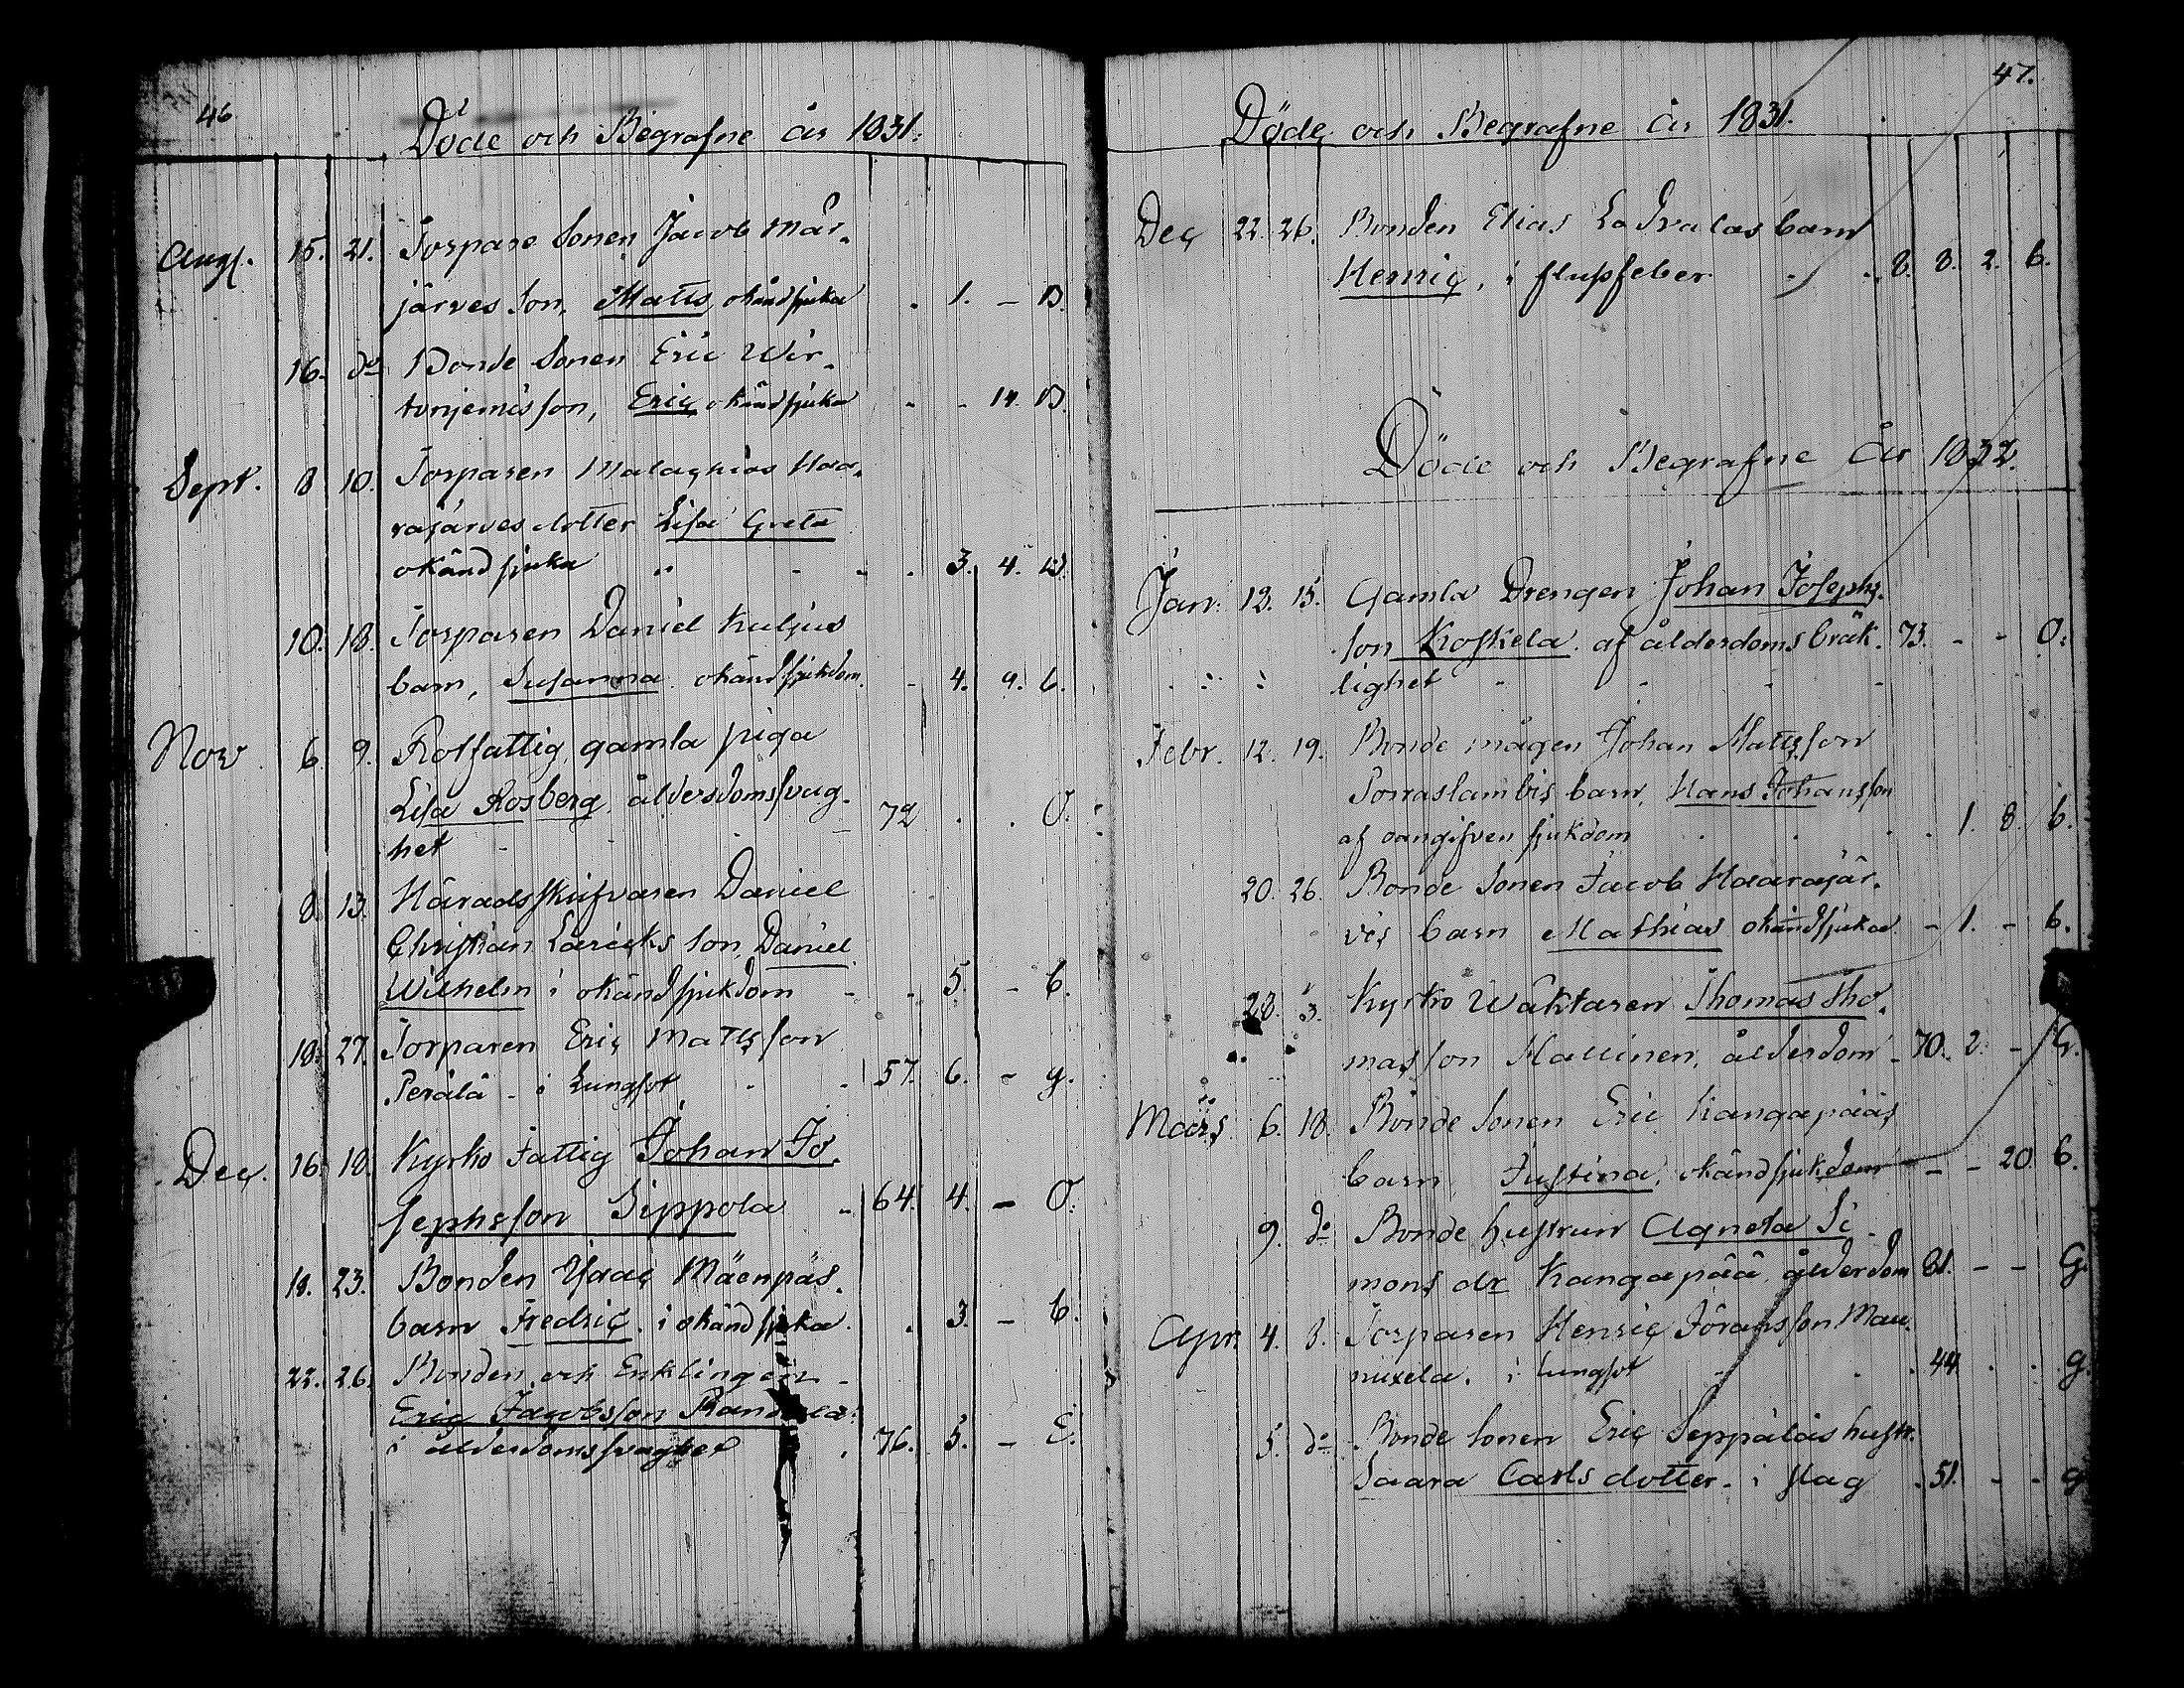 46
Döde och Begrafne år 1831.
Aug. 15. 21. Torpare Sonen Jacob Mär-
järves Son, Matts okänd sjuka . 1. - B.
16. do Bonde Sonen Eric Wir-
son, Eric, okänd sjuka - - 14. B.
Sept. 8 10. Torparen Malachias Haa-
rajärves dotter Lisa Greta
okänd sjuka " - - . 3. 4. B.
10. 18. Torparen Daniel Kuljus
barn, Susanna okänd sjukdom. - 4. 9. b.
Nov. 6. 9. Rotfattig, gamla piga
Lisa Rosberg, ålderdomssvag-
het - - - 72 . . O.
8. 13. Häradsskrifvaren Daniel
Christian Son, Daniel
Wilhelm i okänd sjukdom - . 5. - b.
18. 27. Torparen Eric Mattsson
Perälä - i Lungsot - . 57. 6. - g.
Dec. 16. 18. Kyrko Fattig Johan Jo-
sephsson Sippola - 64. 4. - O.
18. 23. Bonden Isaac Mäenpäs
barn Fredric. i okänd sjuka. . 3. - b.
22. 26. Bonden och Enklingen
Eric Jacobsson
i ålderdomssvaghet . 76. 5. - E.
47.
Döde och Begrafne år 1831.
Dec 22. 26. Bonden Elias Ladvalas barn
Henric, i flussfeber - . 8. 8. 2. b.
Döde och Begrafne År 1832.
Jan. 12. 15. Gamla Drengen Johan Josephs-
son Koskela. af ålderdoms bräk- 73. - - O.
lighet - - - -
Febr. 12. 19. Bonde mågen Johan Mattsson
Porraslambis barn, Hans Johansson
af oangifven sjukdom . . . 1. 8. b.
20. 26. Bonde Sonen Jacob Haarajär-
vis barn Mathias okänd sjuka - 1. - b.
28. 3. Kyrko Wäktaren Thomas Tho-
masson Mallinen, ålderdom - 70. 2. - G.
Mars 6. 18. Bonde Sonen Eric Kangapääs
barn, Justina, okänd sjukdom - - 20. b.
9. do Bonde hustrun Agneta Si-
mons dr Kangapää ålderdom 81. - - G.
Apr. 4. 8. Torparen Henric Jöransson Mau-
nuxela. i lungsot - . . 44. . . g.
5. do Bonde Sonen Eric Seppäläs hustr.
Saara Carls dotter. i slag . 51. - - g